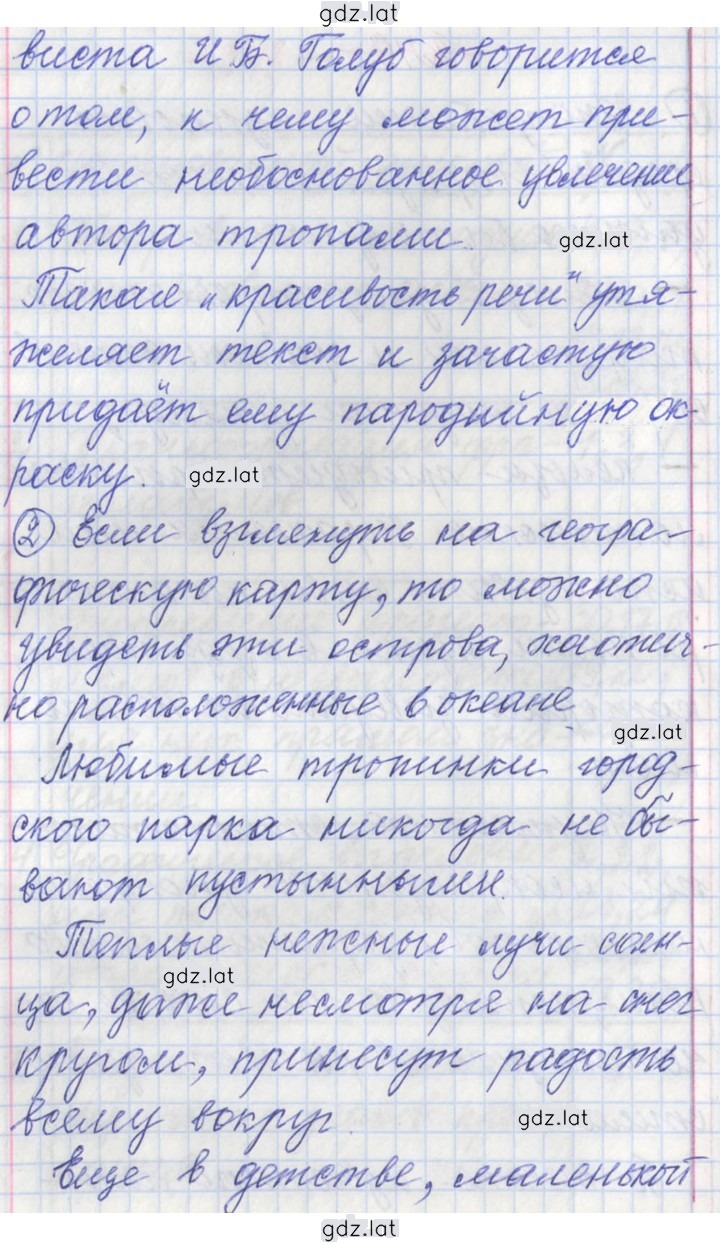 gdz.lat
виста И.Б. Голуб говорится
о том, к чему может при-
вести необоснованное увлечение
автора тропами.
gdz.lat
Такая „красивость речи" утя-
желяет текст и зачастую
придаёт ему пародийную ок-
раску.
gdz.lat
2 Если взглянуть на геогра-
фическую карту, то можно
увидеть эти острова, хаотич-
но расположенные в океане.
gdz.lat
Любимые тропинки город-
ского парка никогда не бы-
вают пустынными.
Теплые нежные лучи солн-
gdz.lat
ца, даже несмотря на снег
кругом, принесут радость
всему вокруг.
gdz.lat
Еще в детстве, маленькой
gdz.lat